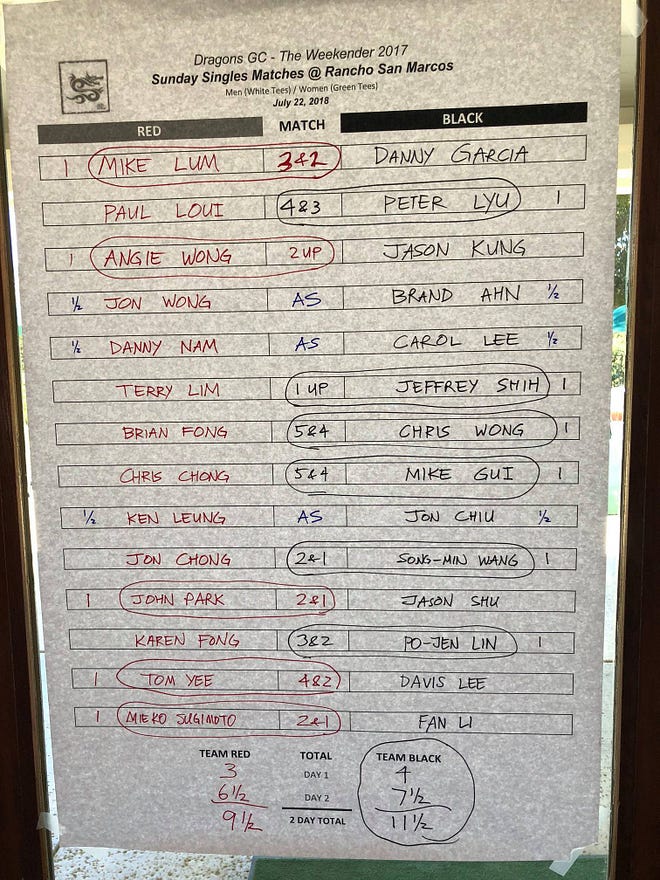 Dragons GC - The Weekender 2017
Sunday Singles Matches @ Rancho San Marcos
Men (White Tees) / Women (Green Tees)
July 22, 2018
RED MATCH BLACK
1 MIKE LUM 3&2 DANNY GARCIA
PAUL LOUI 4&3 PETER LYU 1
1 ANGIE WONG 2 UP JASON KUNG
1/2 JON WONG AS BRAND AHN 1/2
1/2 DANNY NAM AS CAROL LEE 1/2
TERRY LIM 1 UP JEFFREY SHIH 1
BRIAN FONG 5&4 CHRIS WONG 1
CHRIS CHONG 5&4 MIKE GUI 1
1/2 KEN LEUNG AS JON CHIU 1/2
JON CHONG 2&1 SONG-MIN WANG 1
1 JOHN PARK 2&1 JASON SHU
KAREN FONG 3&2 PO-JEN LIN 1
1 TOM YEE 4&2 DAVIS LEE
1 MIEKO SUGIMOTO 2&1 FAN LI
TEAM RED TOTAL TEAM BLACK
3 DAY 1 4
6 1/2 DAY 2 7 1/2
9 1/2 2 DAY TOTAL 11 1/2